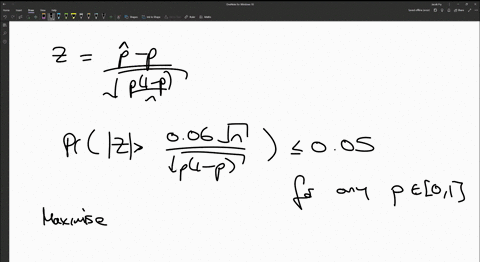 z = \frac{\hat{p} - p}{\sqrt{\frac{p(1-p)}{n}}}
Pr( |Z| > \frac{0.06 \sqrt{n}}{\sqrt{p(1-p)}} ) ≤ 0.05
for any p ∈ [0,1]
Maximise